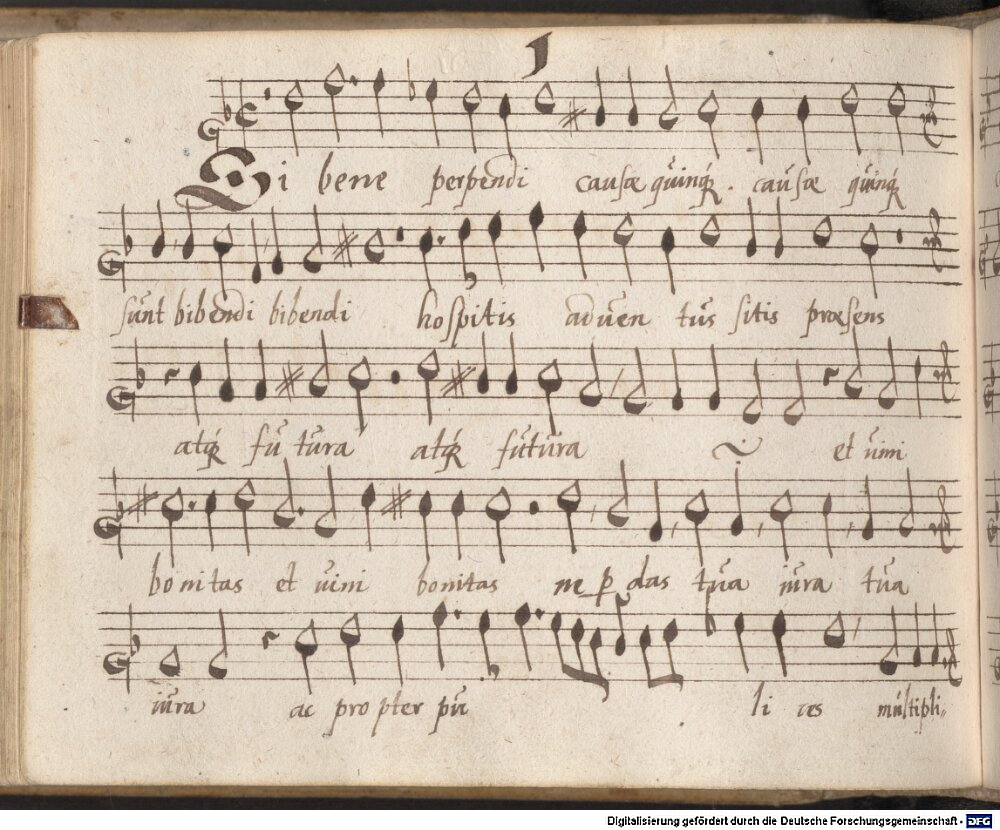 1
Si bene perpendi causæ quinq́ꝫ. causæ quinq́ꝫ
sunt bibendi bibendi hospitis aduen tus sitis præsens
atq́ꝫ fu tura atq́ꝫ futura et uini
bonitas et uini bonitas ne ꝑ das tua iura tua
iura ac propter pu li ces multipli„
Digitalisierung gefördert durch die Deutsche Forschungsgemeinschaft - DFG